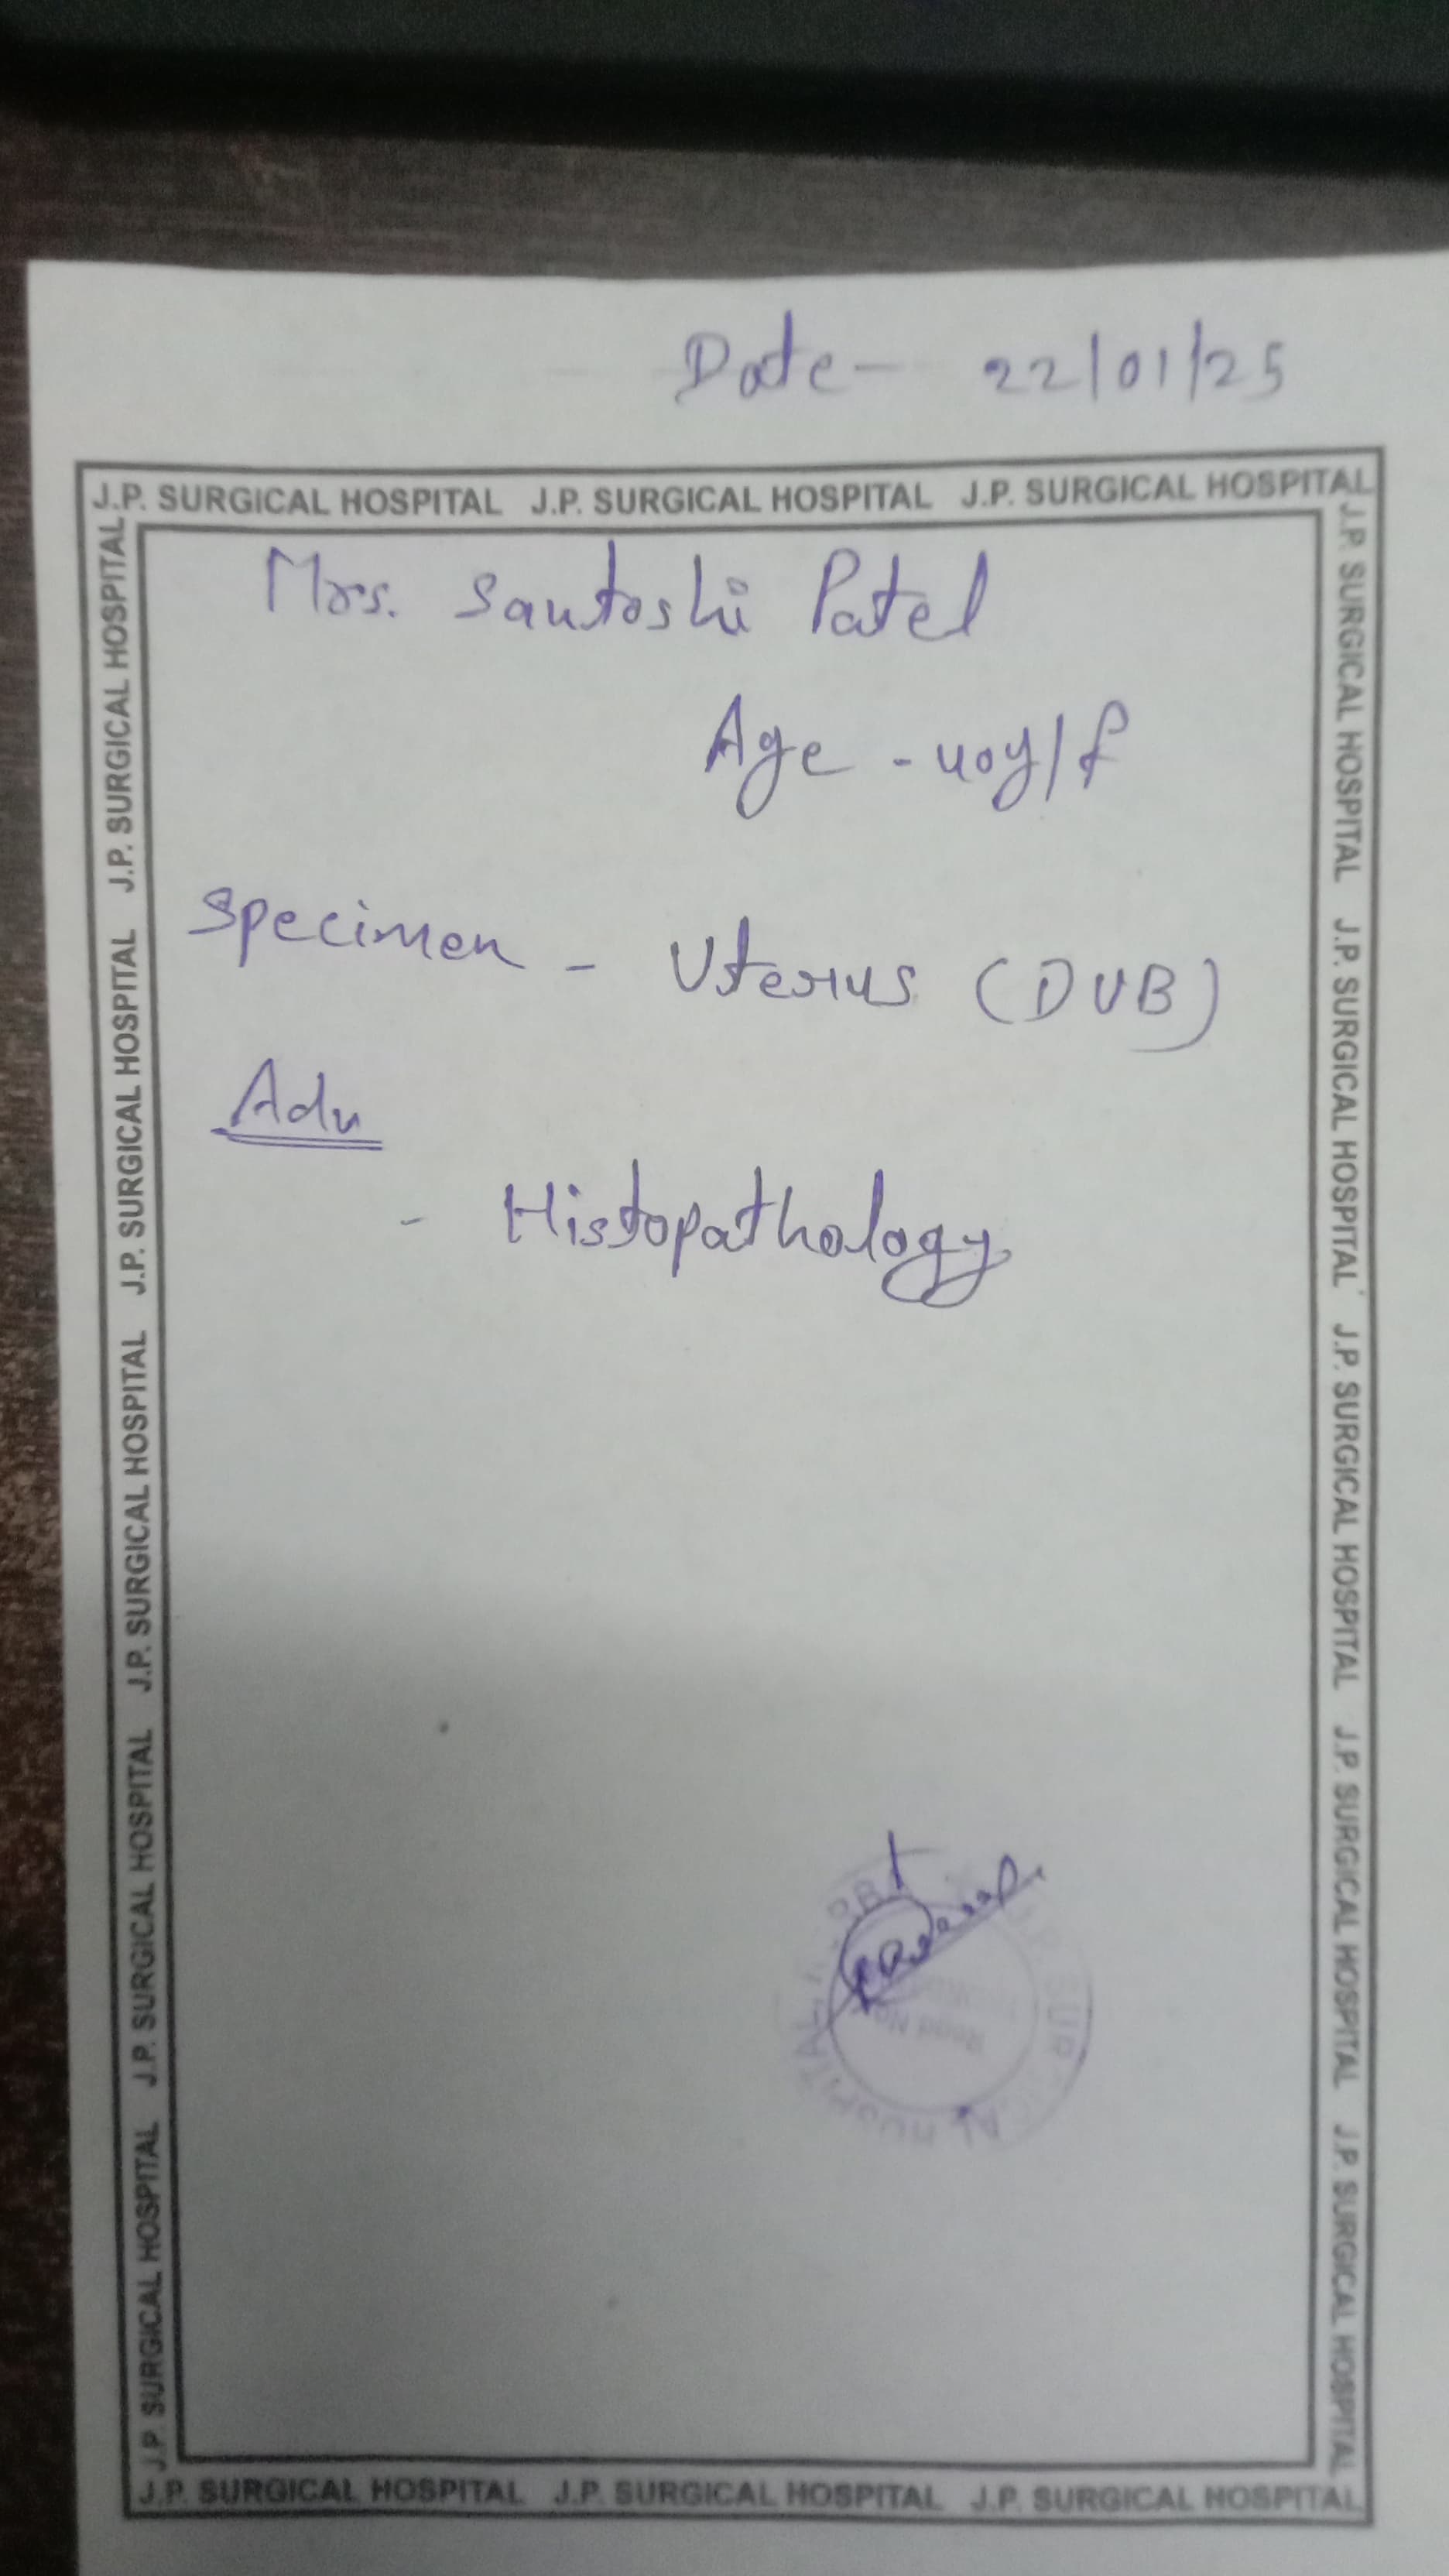 Date - 22/01/25
J.P. SURGICAL HOSPITAL J.P. SURGICAL HOSPITAL J.P. SURGICAL HOSPITAL
J.P. SURGICAL HOSPITAL J.P. SURGICAL HOSPITAL J.P. SURGICAL HOSPITAL J.P. SURGICAL HOSPITAL J.P. SURGICAL HOSPITAL
Mrs. Santoshi Patel
Age - 40y/f
Specimen - Uterus (DUB)
Adv
- Histopathology
SURGICAL HOSPITAL
Road
J.P. SURGICAL HOSPITAL J.P. SURGICAL HOSPITAL J.P. SURGICAL HOSPITAL J.P. SURGICAL HOSPITAL J.P. SURGICAL HOSPITAL
J.P. SURGICAL HOSPITAL J.P. SURGICAL HOSPITAL J.P. SURGICAL HOSPITAL